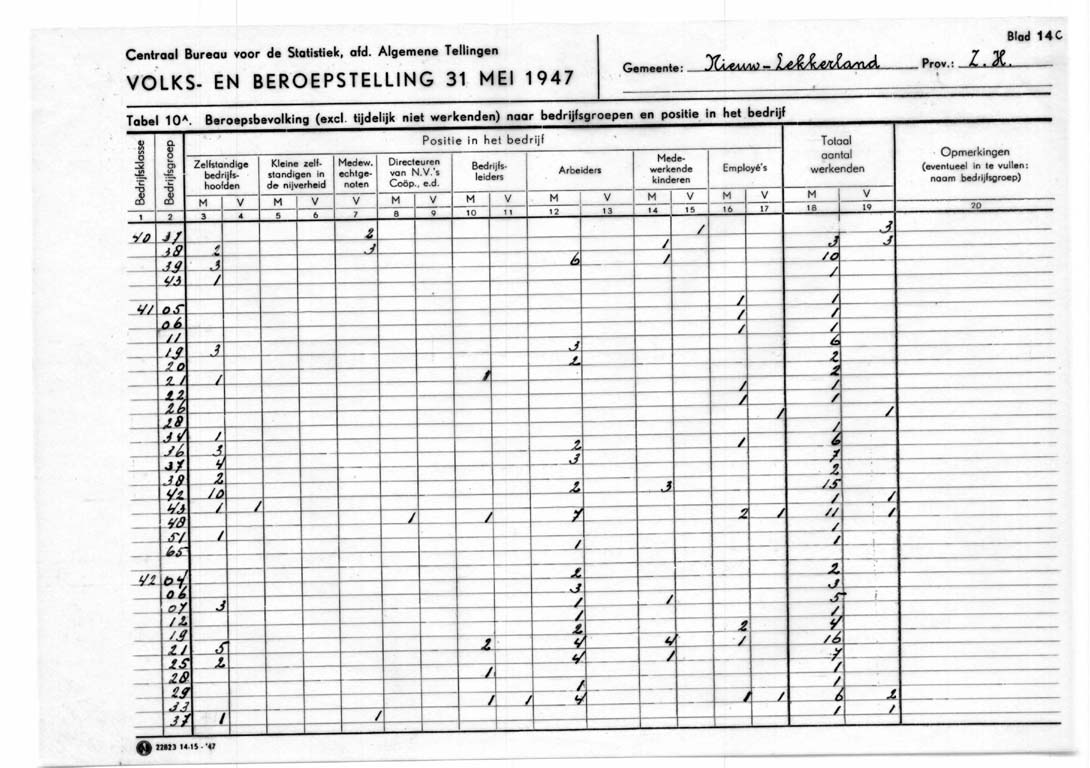 Blad 14C
Centraal Bureau voor de Statistiek, afd. Algemene Tellingen
VOLKS- EN BEROEPSTELLING 31 MEI 1947
Gemeente: Nieuw-Lekkerland Prov.: Z.H.
Tabel 10A. Beroepsbevolking (excl. tijdelijk niet werkenden) naar bedrijfsgroepen en positie in het bedrijf
Bedrijfsklasse
Bedrijfsgroep
Positie in het bedrijf
Zelfstandige bedrijfs-hoofden
Kleine zelf-standigen in de nijverheid
Medew. echtge-noten
Directeuren van N.V.'s Coöp., e.d.
Bedrijfs-leiders
Arbeiders
Mede-werkende kinderen
Employé's
Totaal aantal werkenden
Opmerkingen (eventueel in te vullen: naam bedrijfsgroep)
M V M V V M V M V M V M V M V M V
1 2 3 4 5 6 7 8 9 10 11 12 13 14 15 16 17 18 19 20
40 37 2 1 3
38 2 3 1 3 3
39 3 6 1 10
43 1 1
41 05 1 1
06 1 1
11 1 1
19 3 3 6
20 2 2
21 1 1 2
22 1 1
26 1 1
28 1 1
34 1 1
36 3 2 1 6
37 4 3 7
38 2 2
42 10 2 3 15
43 1 1 1 1
48 1 1 7 2 1 11 1
51 1 1
65 1 1
42 04 2 2
06 3 3
07 3 1 1 5
12 1 1
19 2 2 4
21 5 2 4 4 1 16
25 2 4 1 7
28 1 1
29 1 1
33 1 1 4 1 1 6 2
37 1 1 1 1
22823 14-15 - '47